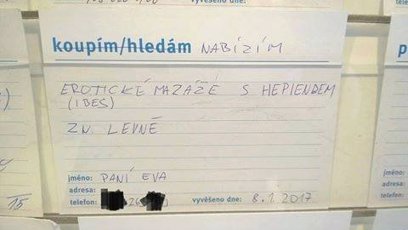 koupím/hledám NABÍZÍM
EROTICKÉ MAZÁŽÉ S HEPIENDEM
(IBES)
ZN. LEVNĚ
jméno: PANÍ EVA
adresa:
telefon: 26 vyvěšeno dne: 8.1.2017
15
p